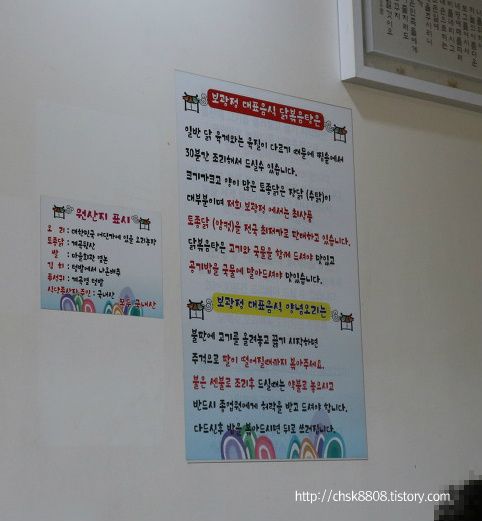 보광정 대표음식 닭볶음탕은
일반 닭 육계와는 육질이 다르기 때문에 찜솥에서
30분간 조리해서 드실수 있습니다.
크기가크고 양이 많은 토종닭은 장닭 (수탉)이
대부분이며 저희 보광정 에서는 최상품
토종닭 (암컷)을 전국 최저가로 판매하고 있습니다.
닭볶음탕은 고기와 국물을 함께 드셔야 맛있고
공기밥을 국물에 말아드셔야 맛있습니다.
보광정 대표음식 양념오리는
불판에 고기를 올려놓고 끓기 시작하면
주걱으로 팔이 떨어질때까지 볶아주세요.
불은 센불로 조리후 드실때는 약불로 놓으시고
반드시 종업원에게 허락을 받고 드셔야 합니다.
다드신후 밥을 볶아드시면 뒤로 쓰러집니다.
원산지 표시
오 리 : 대한민국 어딘가에 있을 오리농장
토종닭 : 계곡뒷산
쌀 : 마을회관 옆논
김 치 : 텃밭에서 나온배추
푸성귀 : 계곡옆 텃밭
식당종사자,주인 : 국내산
모두 국내산
http://chsk8808.tistory.com